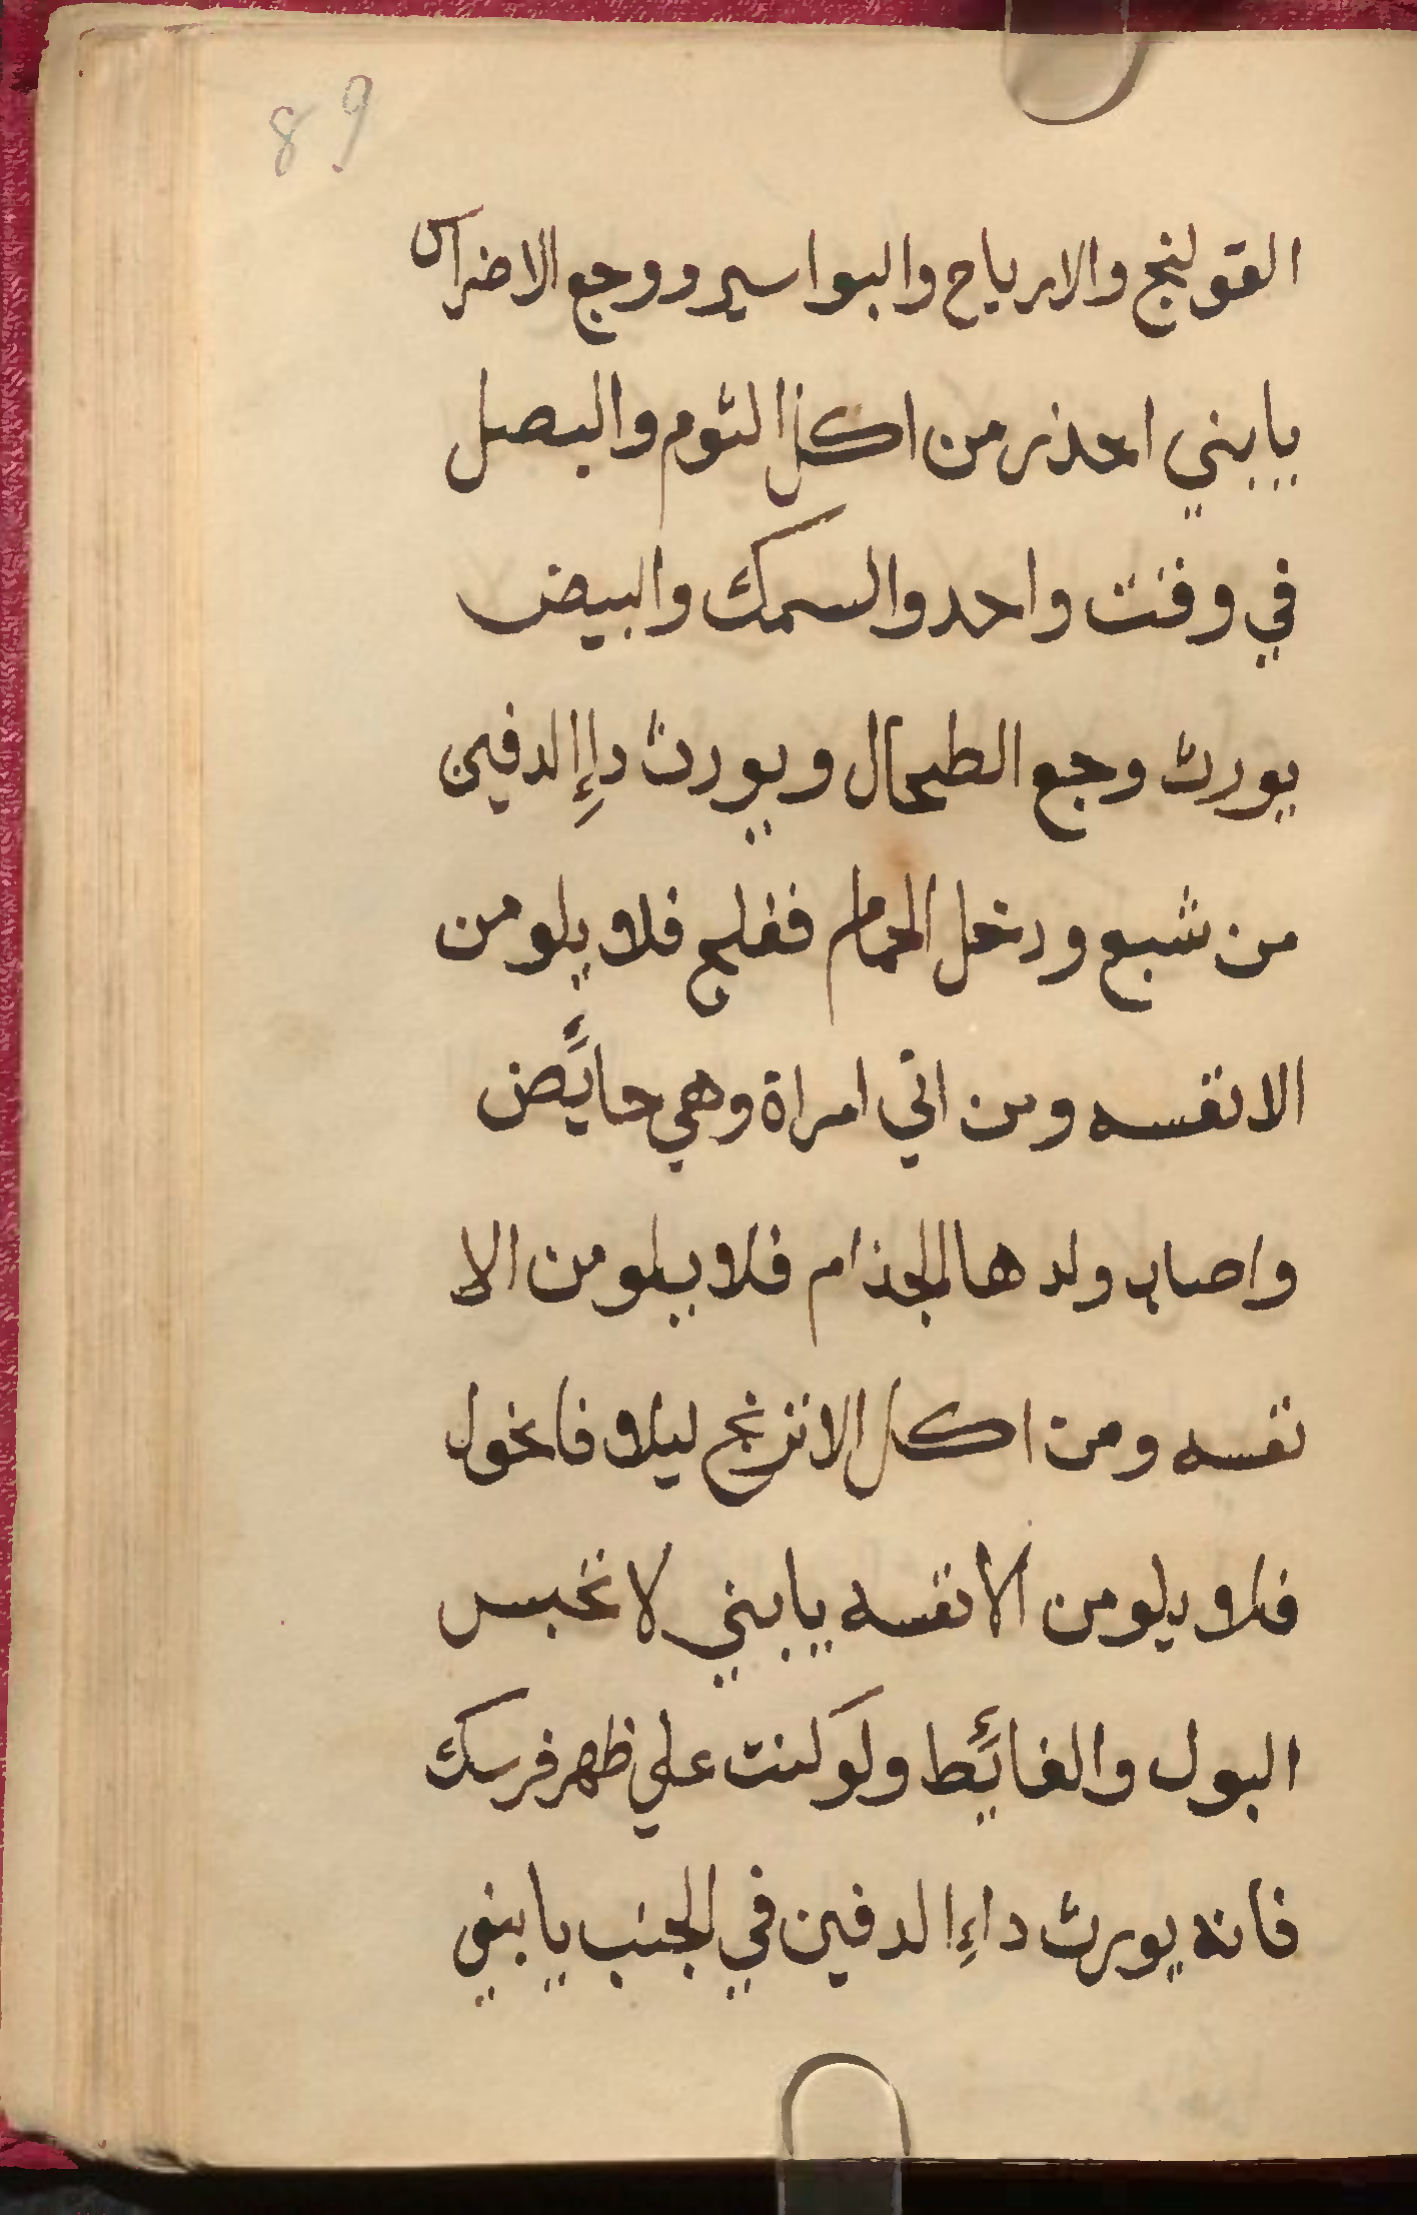 89
القولنج والارياح والبواسير ووجع الاضراس
يابني احذر من اكل الثوم والبصل
في وقت واحد والسمك والبيض
يورث وجع الطحال ويورث داإ الدفين
من شبع ودخل الحمام ففلج فلا يلومن
الا نفسه ومن اتي امراة وهي حائض
واصاب ولدها الجذام فلا يلومن الا
نفسه ومن اكل الاترنج ليلا فاخول
فلا يلومن الا نفسه يابني لا تحبس
البول والغائط ولو كنت علي ظهر فرسك
فانه يورث داءِ الدفين في الجنب يابني